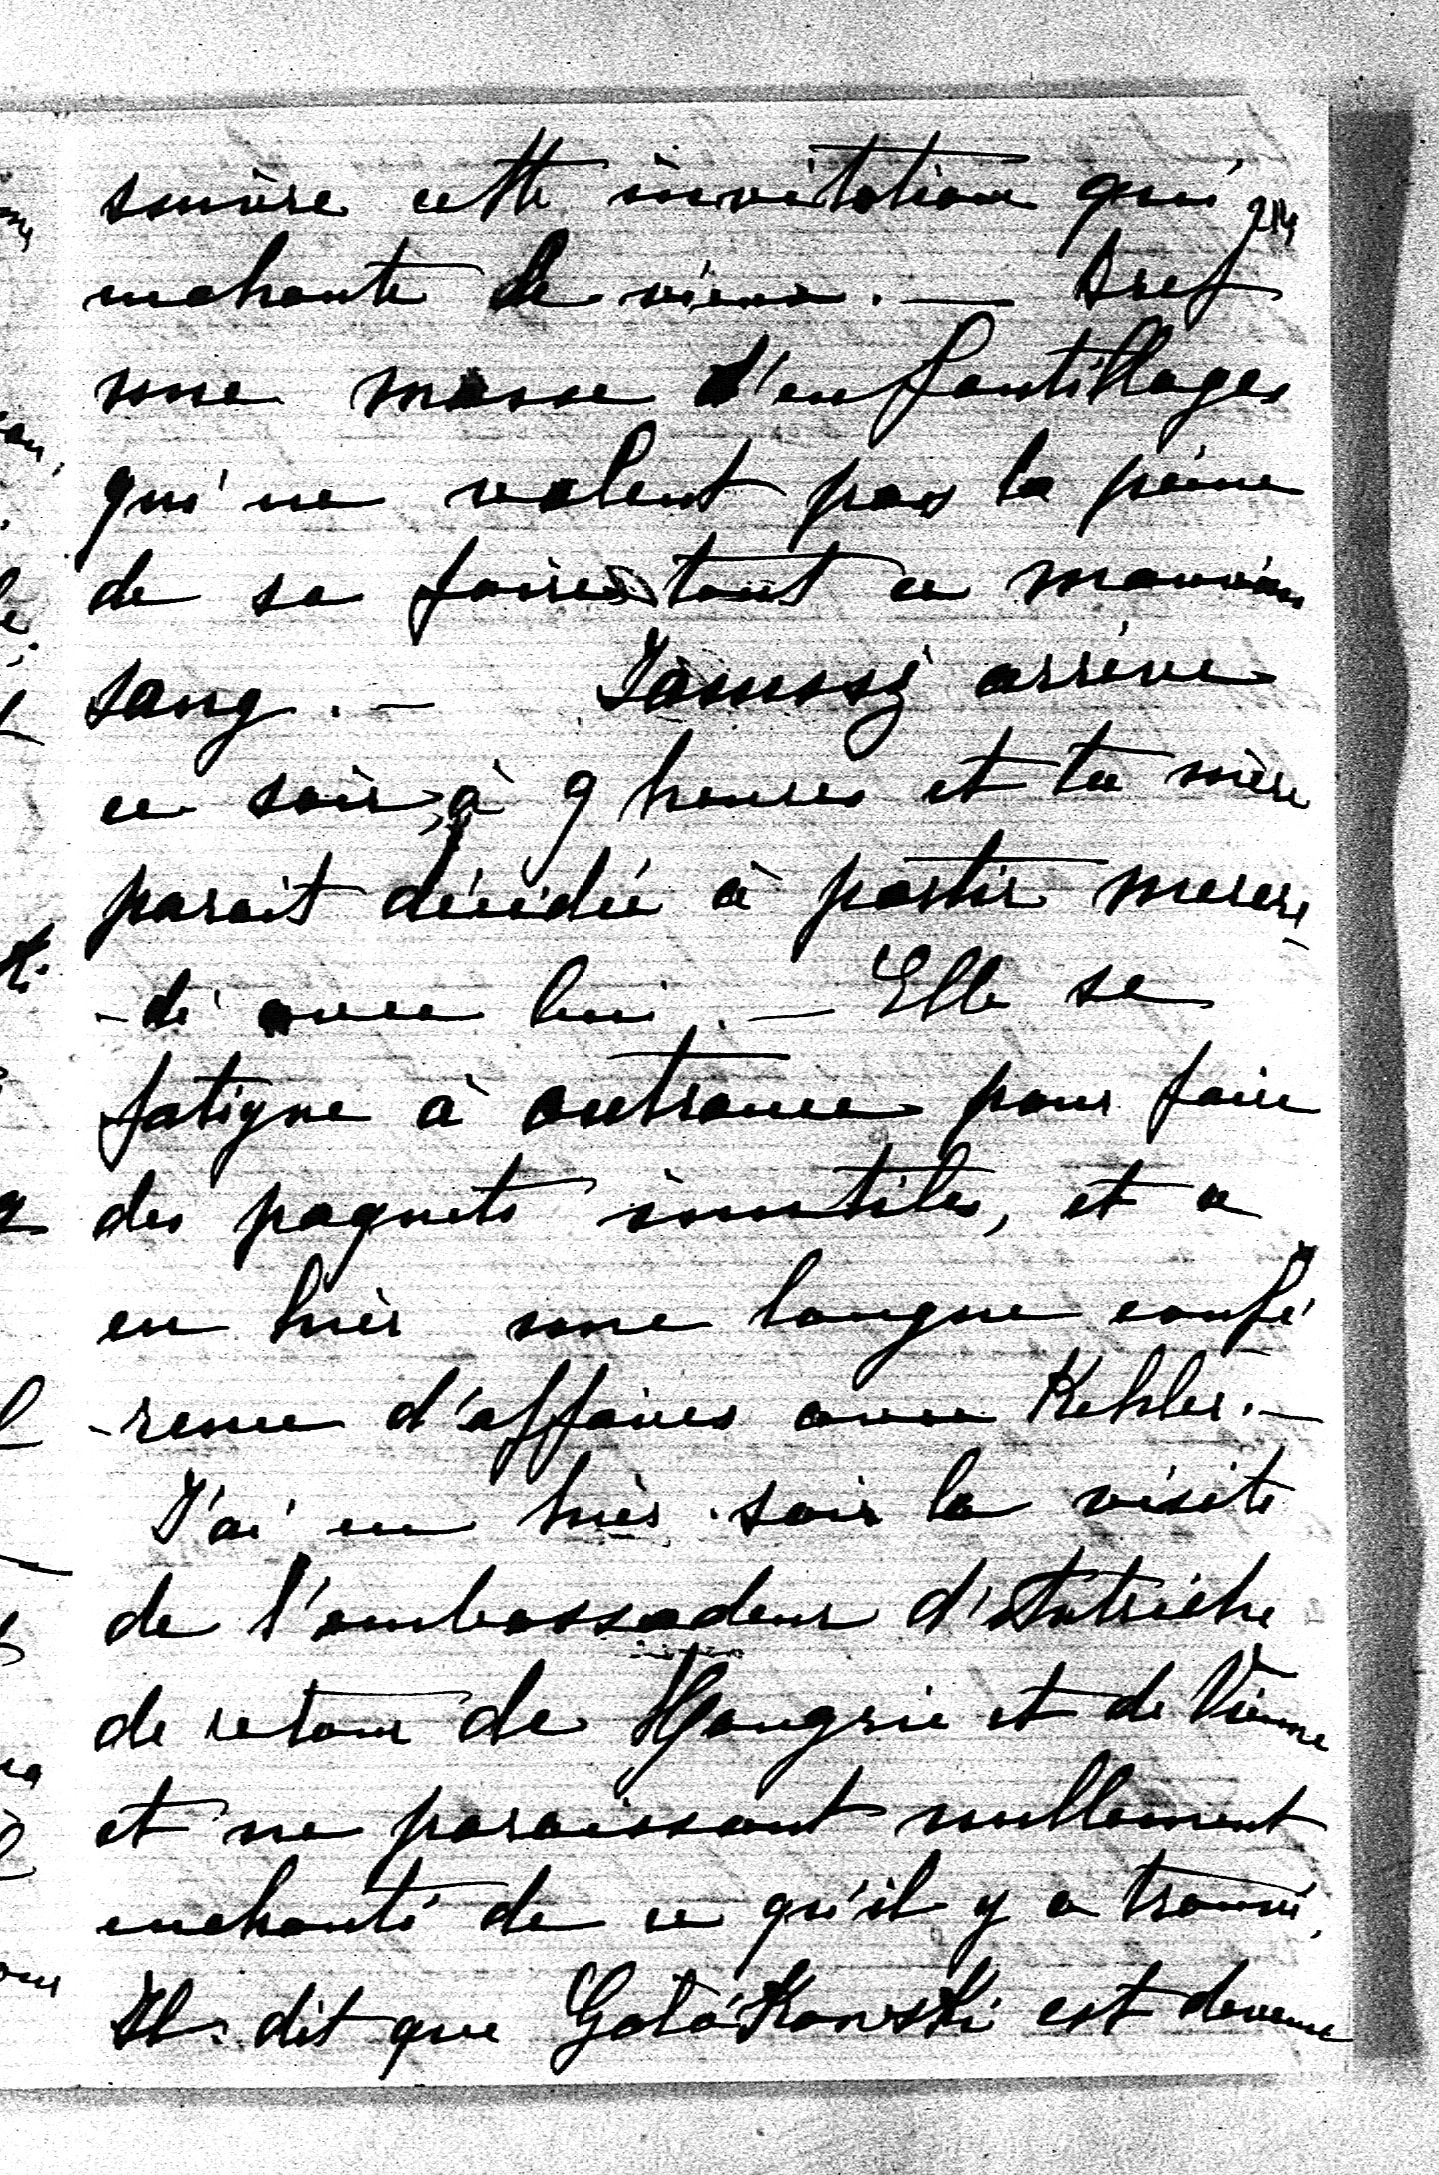 suivre cette invitation qui
enchante le vieux. — Bref
une masse d'enfantillages
qui ne valent pas la peine
de se faire tant ce mauvais
sang. — arrive
ce soir, à 9 heures et ta mère
parait décidée à partir mercre
-di avec lui. — Elle se
fatigue à outrance pour faire
des paquets inutiles, et a
eu hier une longue confé
-rence d'affaires avec Kehler. —
J'ai eu hier soir la visite
de l'ambassadeur d'Autriche
de retour de Hongrie et de Vienne
et ne paraissant nullement
enchanté de ce qu'il y a trouvé,
Il dit que est devenu